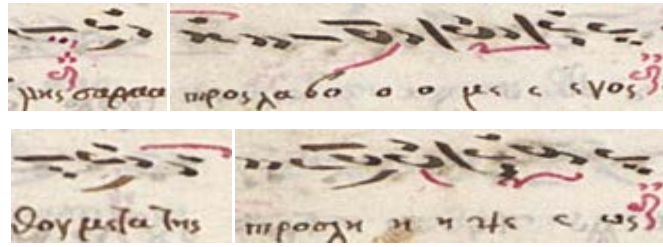 μης σαρκαα προσλα βο ο ο με ε ενος
θου μετα της προσλη η η ψε ε ως